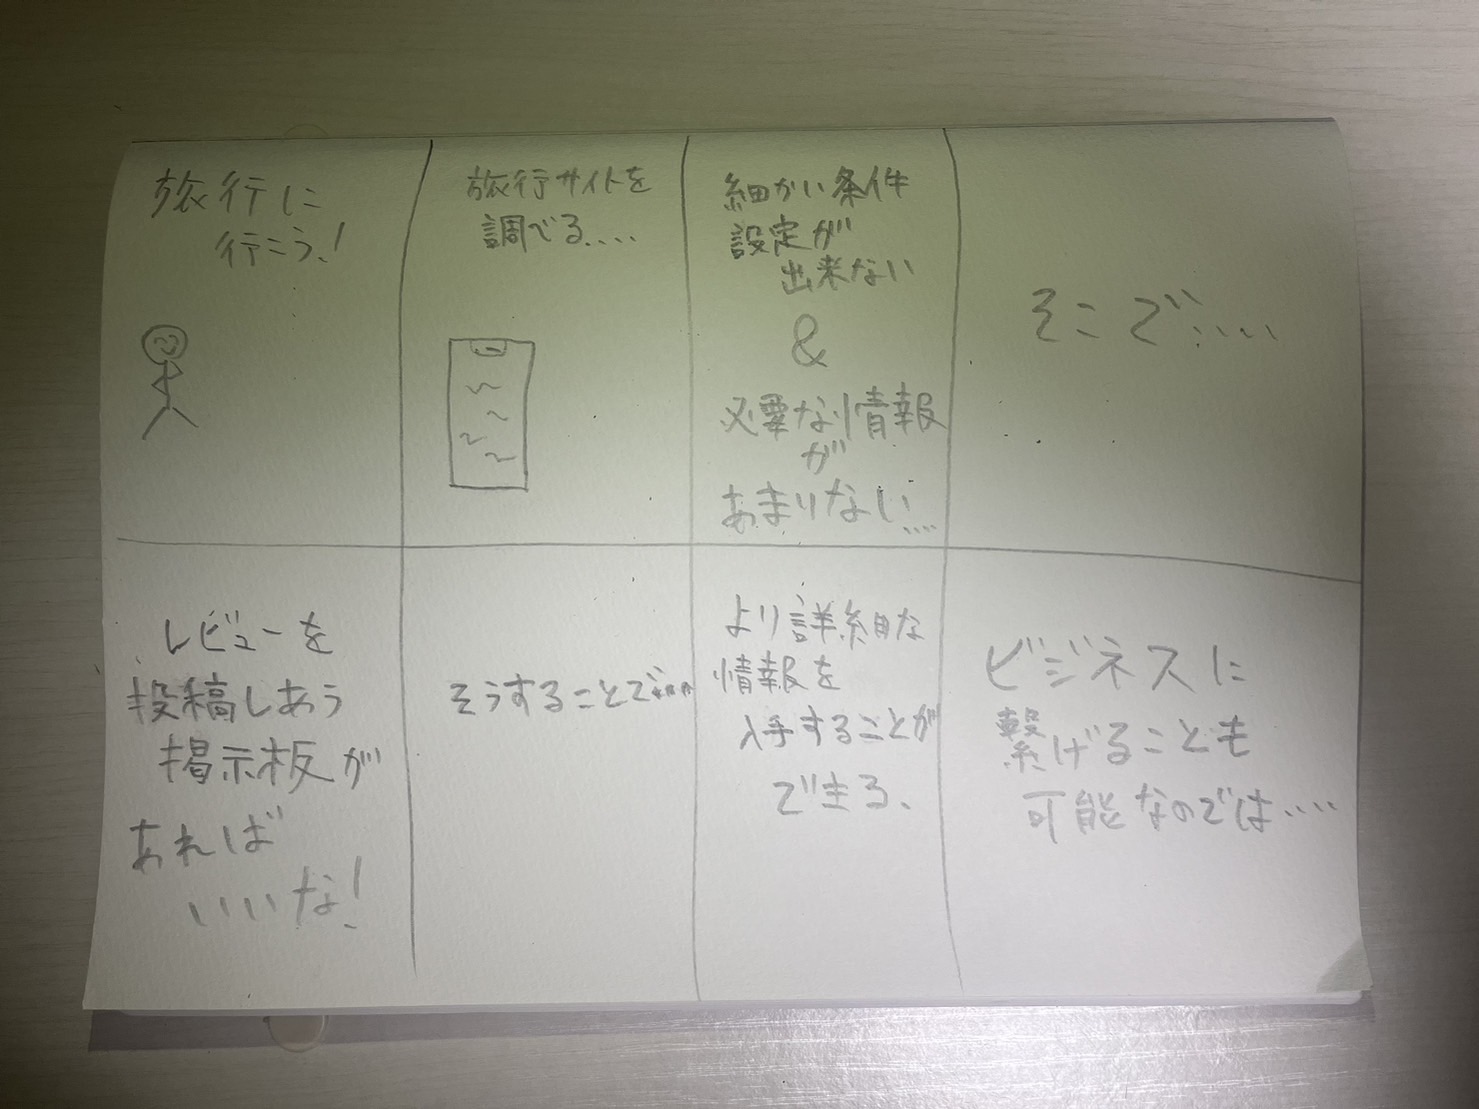 旅行に
行こう!
旅行サイトを
調べる....
細かい条件
設定が
出来ない
&
必要な情報
が
あまりない....
そこで....
レビューを
投稿しあう
掲示板が
あれば
いいな!
そうすることで....
より詳細な
情報を
入手することが
できる、
ビジネスに
繋げることも
可能なのでは....